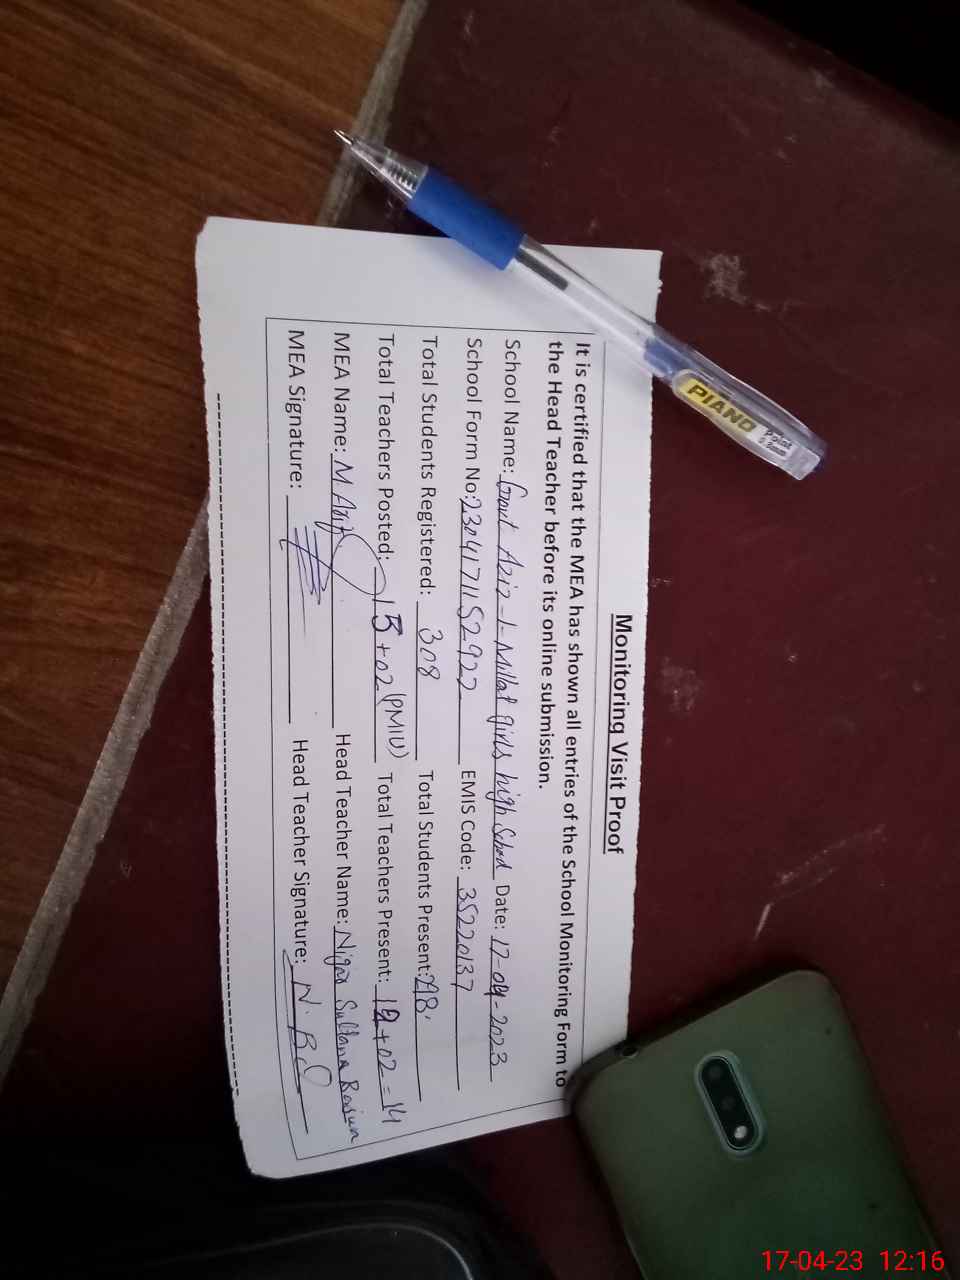 Monitoring Visit Proof
It is certified that the MEA has shown all entries of the School Monitoring Form to
the Head Teacher before its online submission.
School Name: Govt Aziz-I-Millat girls high School Date: 17-04-2023
School Form No: 2304171152922 EMIS Code: 35220137
Total Students Registered: 308 Total Students Present: 218
Total Teachers Posted: 15+02 (PMIU) Total Teachers Present: 12+02=14
MEA Name: M. Head Teacher Name: Nigar Sultana
MEA Signature: Head Teacher Signature: N.
PIANO
Point
0.8mm
17-04-23 12:16